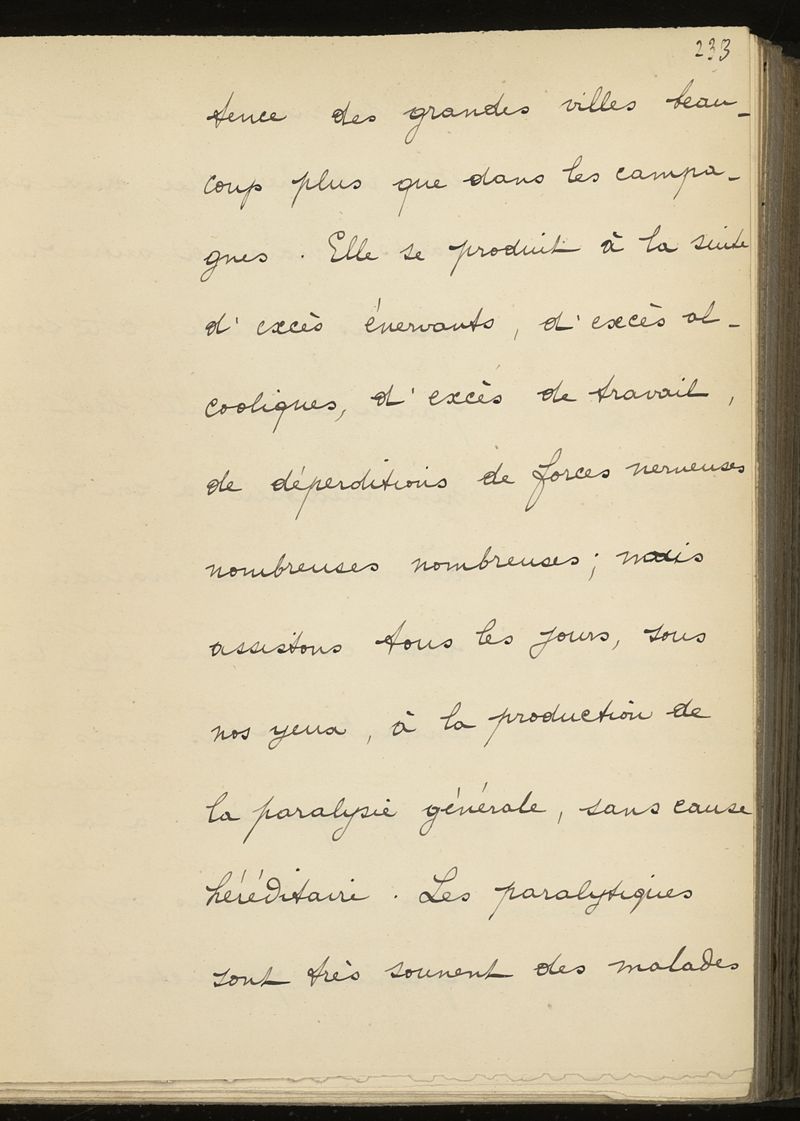 233
tence des grandes villes beau-
coup plus que dans les campa-
gnes. Elle se produit à la suite
d'excès énervants, d'excès al-
cooliques, d'excès de travail,
de déperditions de forces nerveuses
nombreuses nombreuses; mais
assistons tous les jours, sous
nos yeux, à la production de
la paralysie générale, sans cause
héréditaire. Les paralytiques
sont très souvent des malades